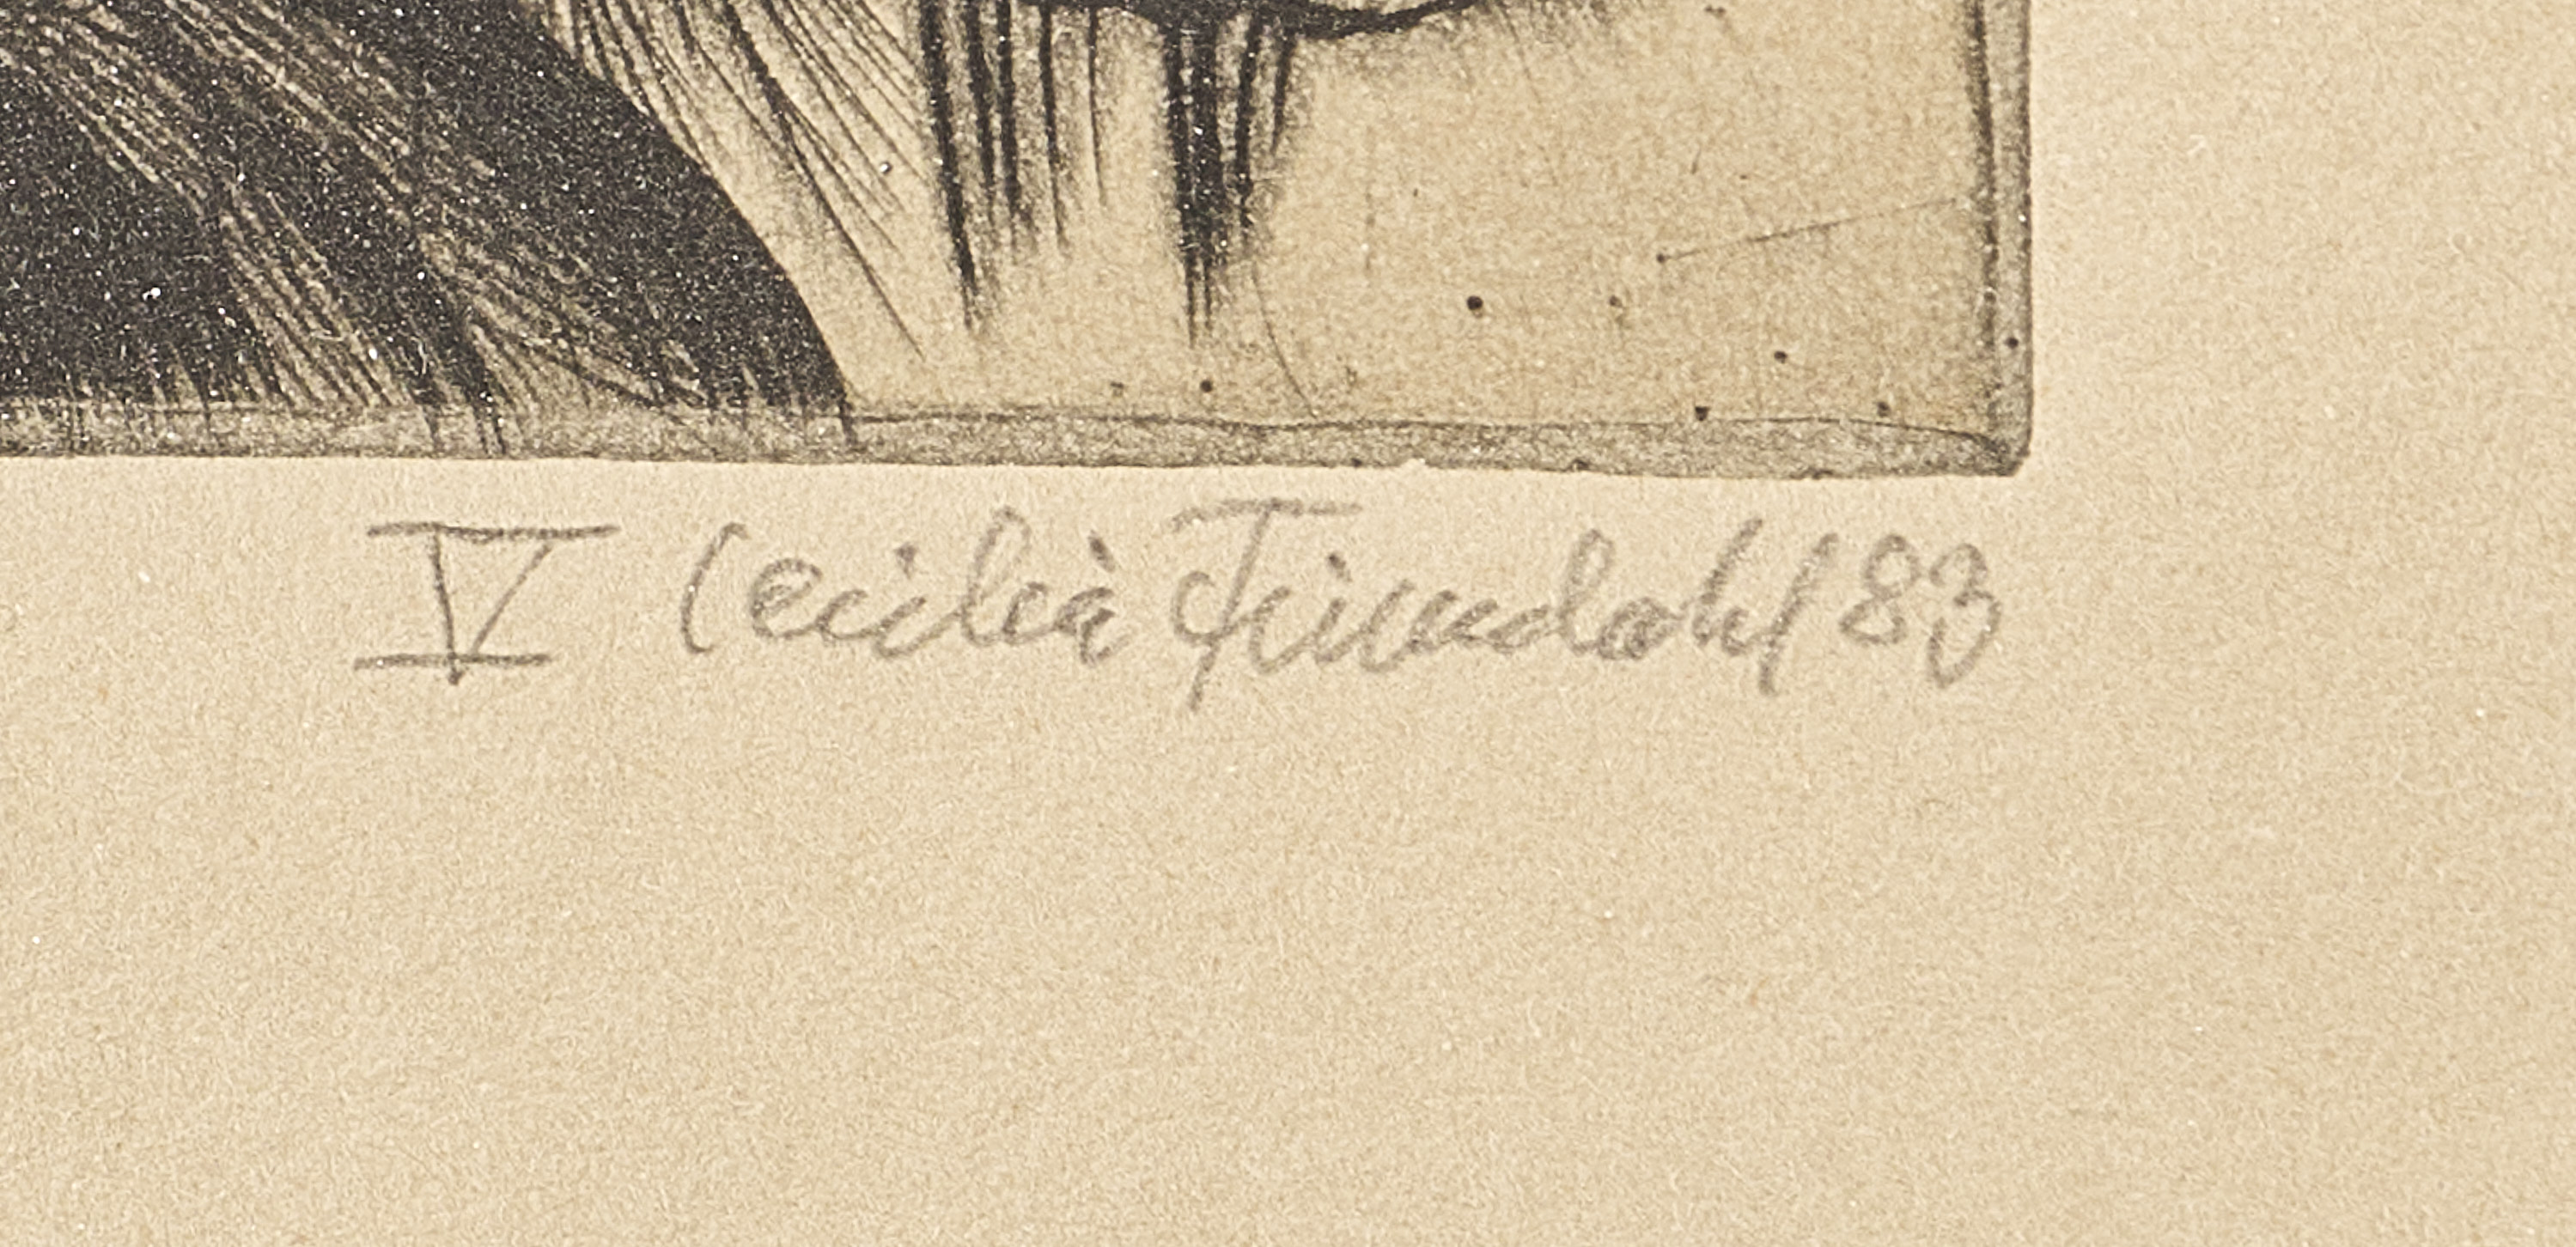 V Cecilia Frisendahl 83